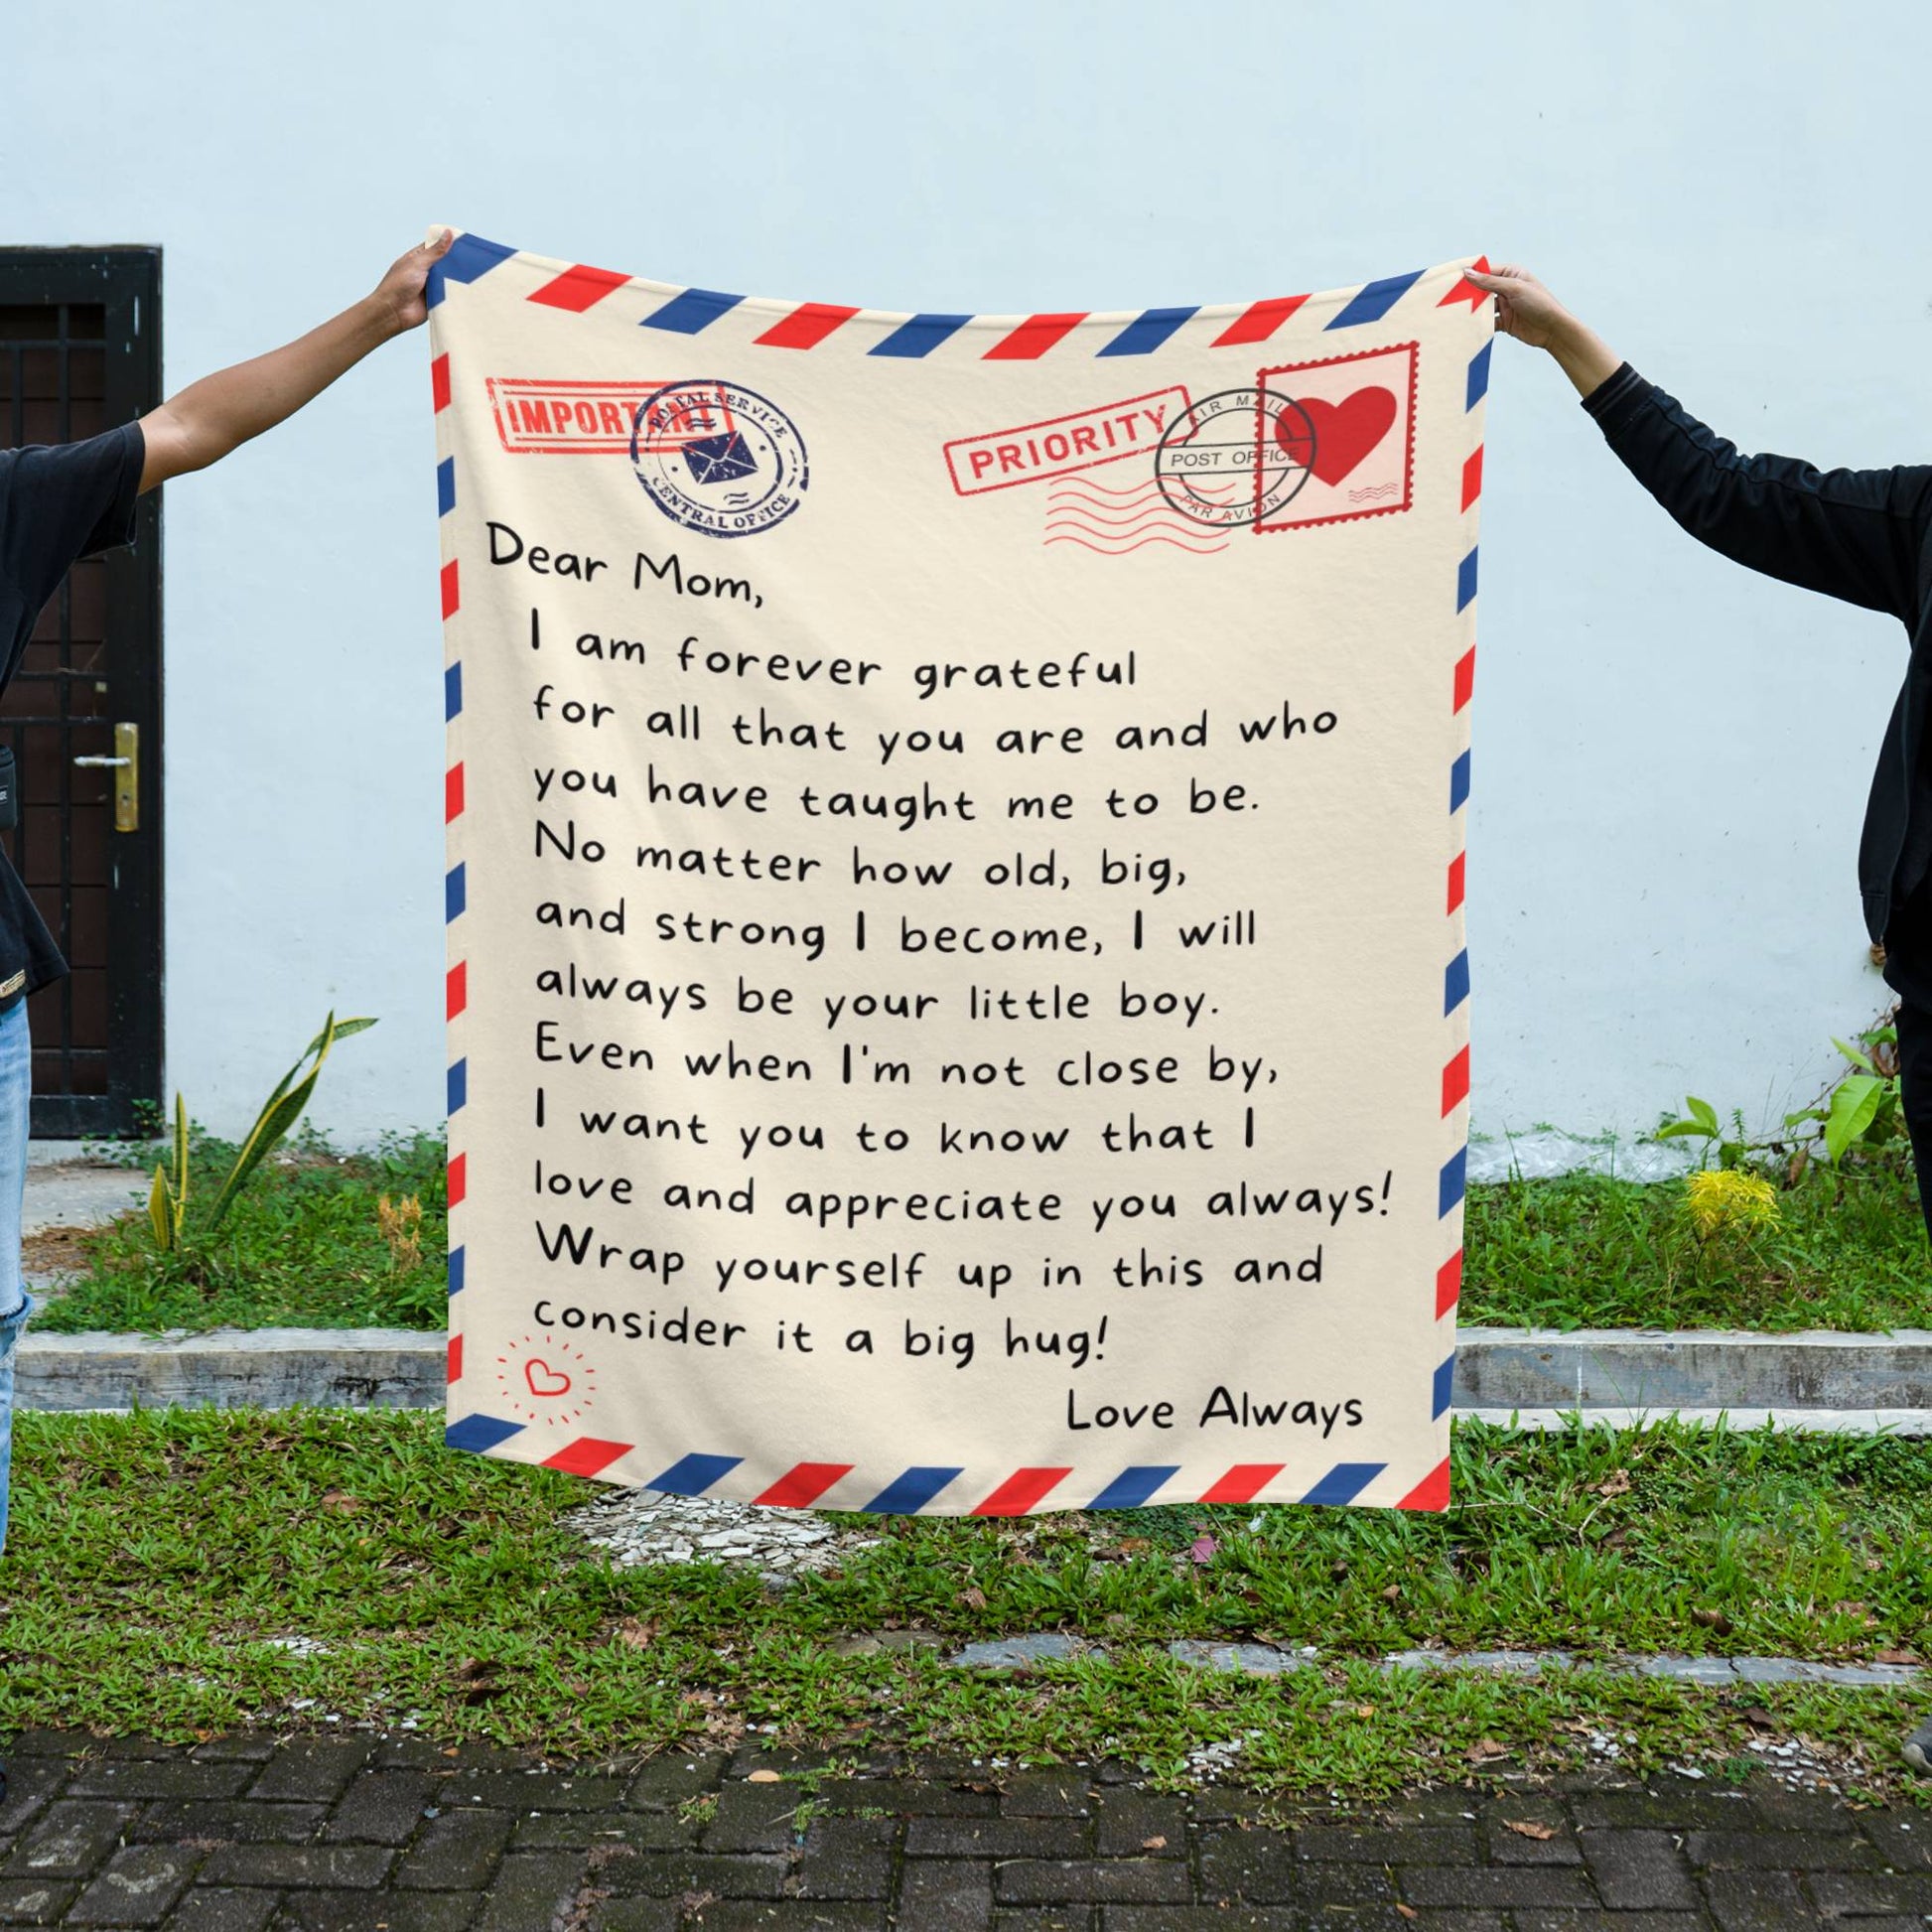 IMPORTANT
POSTAL SERVICE
CENTRAL OFFICE
PRIORITY
AIR MAIL
POST OFFICE
PAR AVION
Dear Mom,
I am forever grateful
for all that you are and who
you have taught me to be.
No matter how old, big,
and strong I become, I will
always be your little boy.
Even when I'm not close by,
I want you to know that I
love and appreciate you always!
Wrap yourself up in this and
consider it a big hug!
Love Always